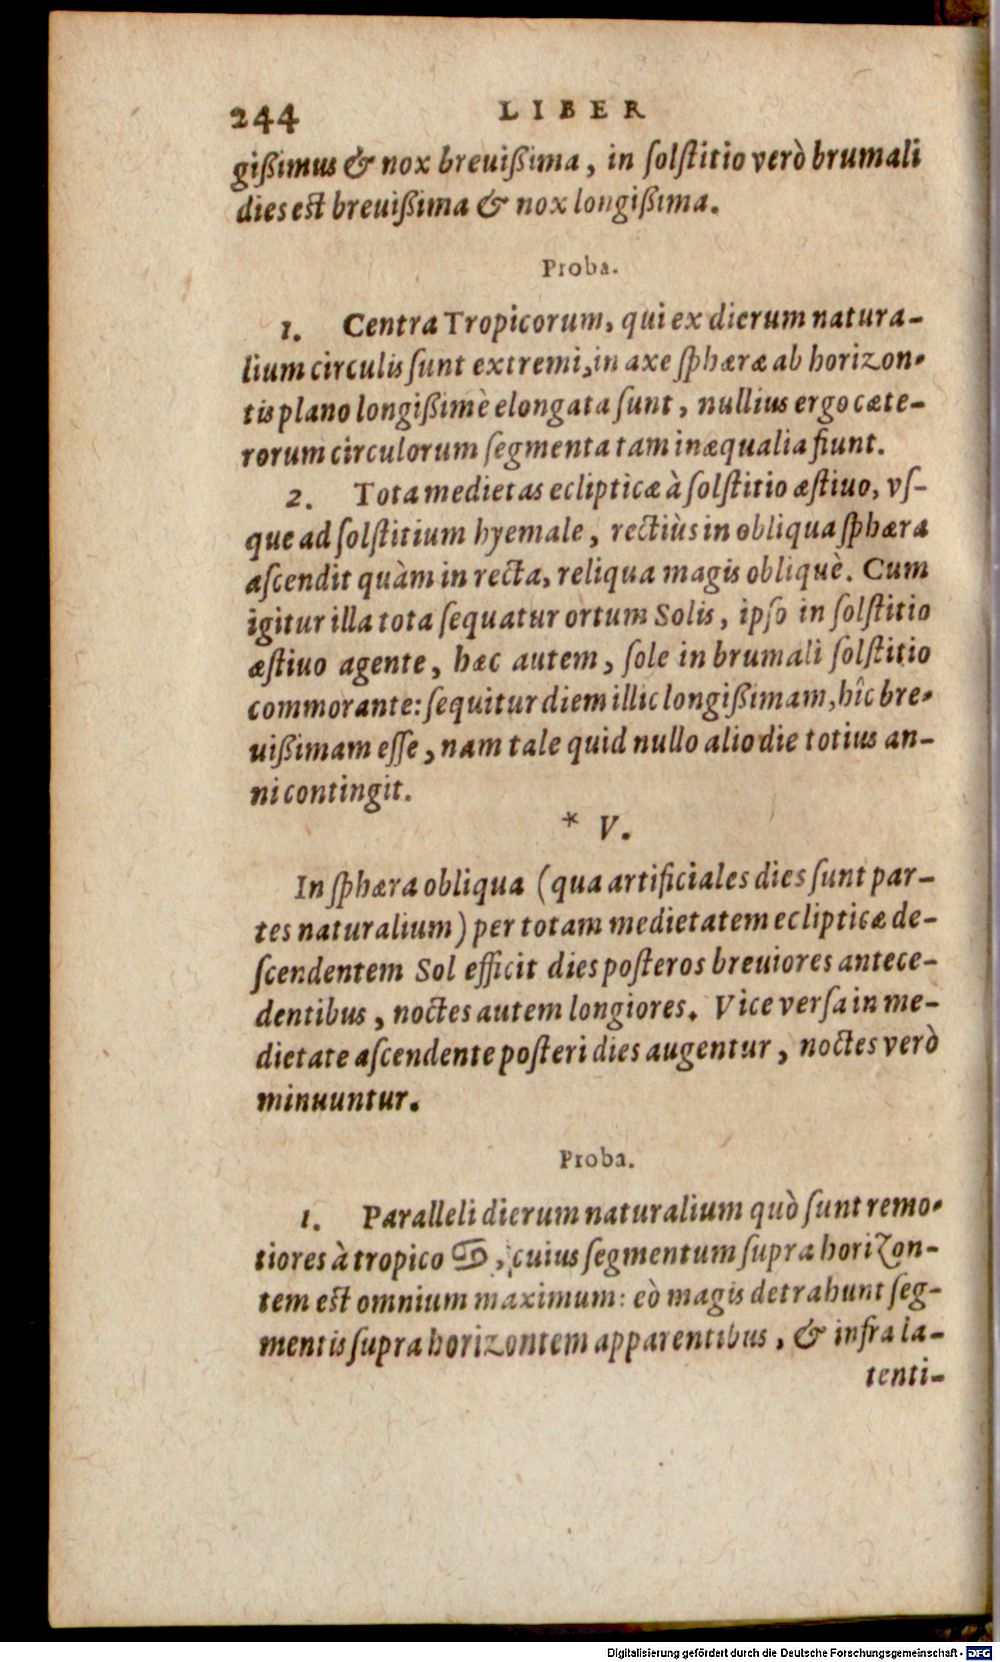 244 LIBER
gißimus & nox breuißima, in ſolſtitio verò brumali
dies est breuißima & nox longißima.
Proba.
1. Centra Tropicorum, qui ex dierum natura-
lium circulis ſunt extremi, in axe ſphæræ ab horizon-
tis plano longißimè elongata ſunt, nullius ergo cæte-
rorum circulorum ſegmenta tam inæqualia fiunt.
2. Tota medietas eclipticæ à ſolſtitio æſtiuo, vſ-
que ad ſolſtitium hyemale, rectiùs in obliqua ſphæra
aſcendit quàm in recta, reliqua magis obliquè. Cum
igitur illa tota ſequatur ortum Solis, ipſo in ſolſtitio
æſtiuo agente, hæc autem, ſole in brumali ſolſtitio
commorante: ſequitur diem illic longißimam, hîc bre-
uißimam eſſe, nam tale quid nullo alio die totius an-
ni contingit.
* V.
In ſphæra obliqua (qua artificiales dies ſunt par-
tes naturalium) per totam medietatem eclipticæ de-
ſcendentem Sol efficit dies poſteros breuiores antece-
dentibus, noctes autem longiores. Vice verſa in me-
dietate aſcendente poſteri dies augentur, noctes verò
minuuntur.
Proba.
1. Paralleli dierum naturalium quò ſunt remo-
tiores à tropico ♋, cuius ſegmentum ſupra horizon-
tem est omnium maximum: eò magis detrahunt ſeg-
mentis ſupra horizontem apparentibus, & infra la-
tenti-
Digitalisierung gefördert durch die Deutsche Forschungsgemeinschaft - DFG